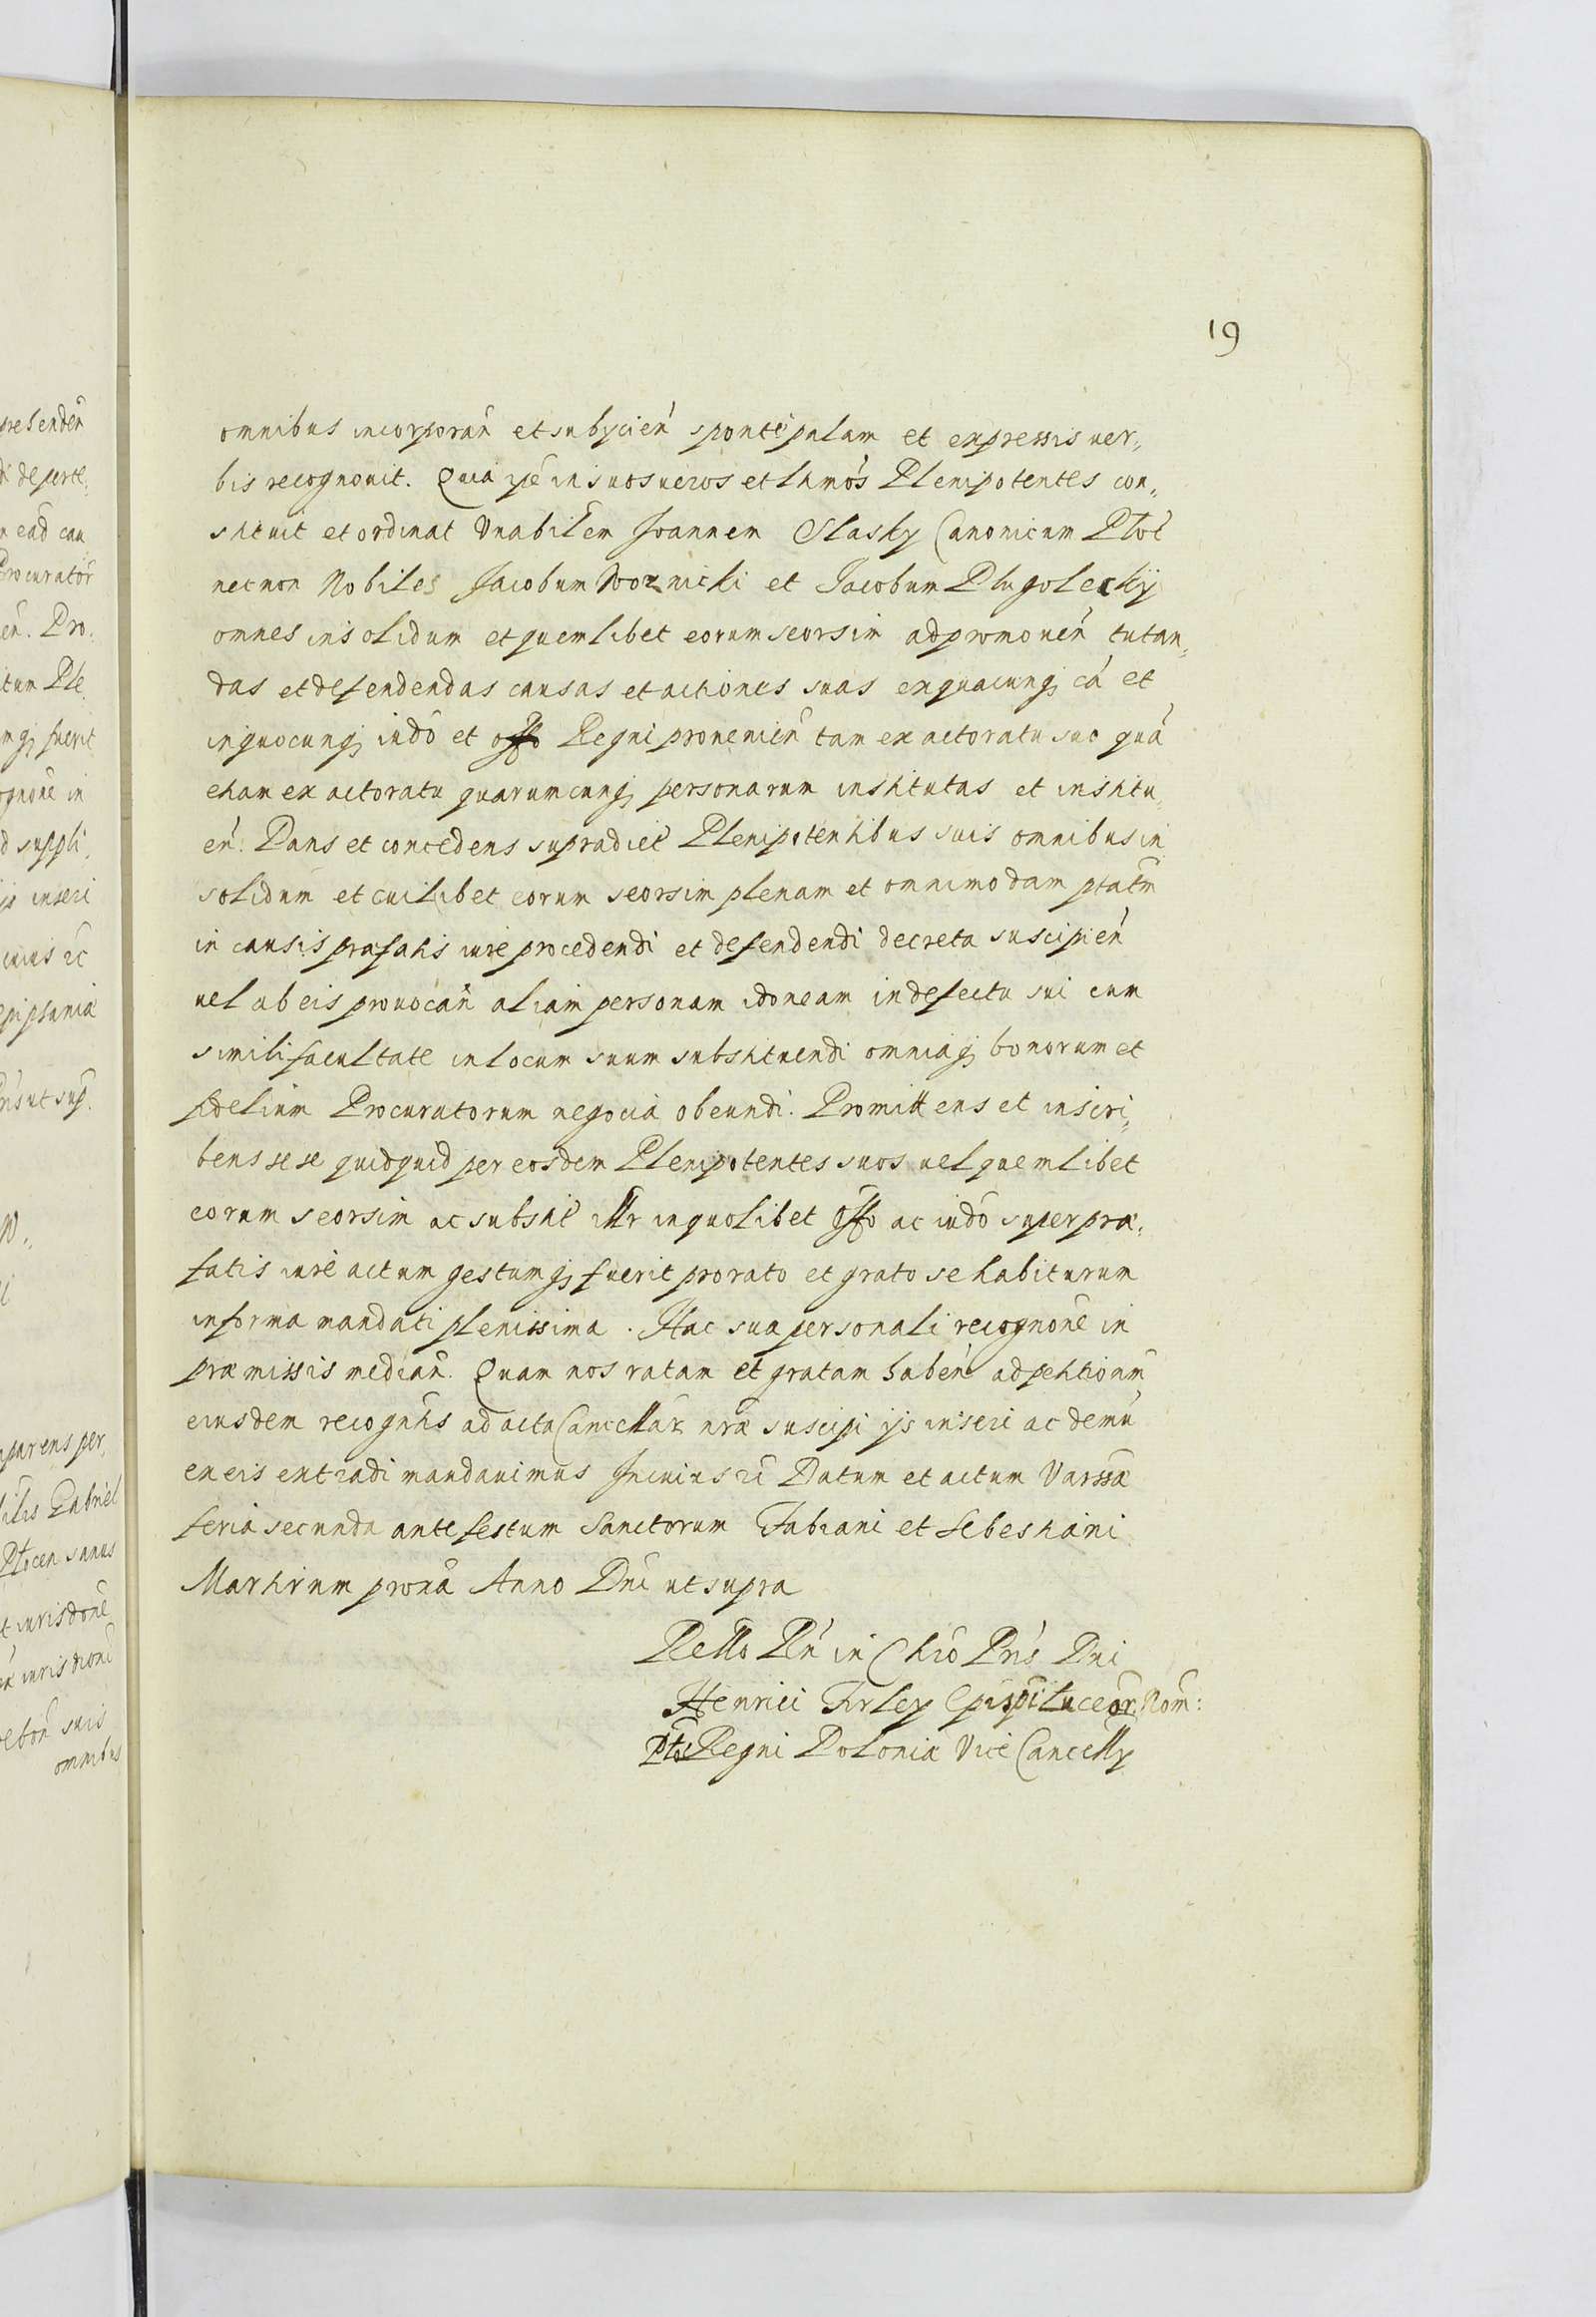 19
omnibus incorporañ et subycień sponte palam et expressis uer„
bis recognouit. Quia ipe in suos ueros et lĩmos Plenipotentes con„
stituit et ordinat Vnabilem Joannem Slasky Canonicum Ploć
necnon Nobiles Jacobum Woznicki et Jacobum Dlugoleckij
omnes insolidum et quemlibet eorum seorsim ad promoueń tutan„
das et defendendas causas et actiones suas ex quacunqȝ cã et
in quocunqȝ iudõ et offõ Regni prouenień tam ex actoratu suo quã
etiam ex actoratu quarumcunqȝ personarum institutas et institu„
eń. Dans et concedens supradict̃ Plenipotentibus suis omnibus in
solidum et cuilibet eorum seorsim plenam et omnimodam ptatm̃
in causis præfatis iure procedendi et defendendi decreta suscipień
uel ab eis prouocañ aliam personam idoneam in defectu sui cum
simili facultate in locum suum substituendi omniaqȝ bonorum et
fidelium Procuratorum negocia obeundi. Promittens et inscri„
bens sese quidquid per eosdem Plenipotentes suos uel quemlibet
eorum seorsim ac substit̃ illr in quolibet offõ ac iudõ super præ„
fatis iure actum gestumqȝ fuerit pro rato et grato se habiturum
in forma mandati plenissima. Hac sua personali recognoñe in
præmissis median̄. Quam nos ratam et gratam habeñ ad petitionm̃
eiusdem recognt̃is ad acta Cancellar nræ suscipi ijs inseri ac demũ
ex eis extradi mandauimus In cuius rĩ Datum et actum Varssæ
feria secunda ante festum Sanctorum Fabiani et Sebestiani
Martirum proxã Anno Dnĩ ut supra
Relĩo Rń in Chrõ Prĩs Dni
Henrici Firley Epispi Luceor. Nom:
Ploc Regni Poloniæ Vice Cancelly